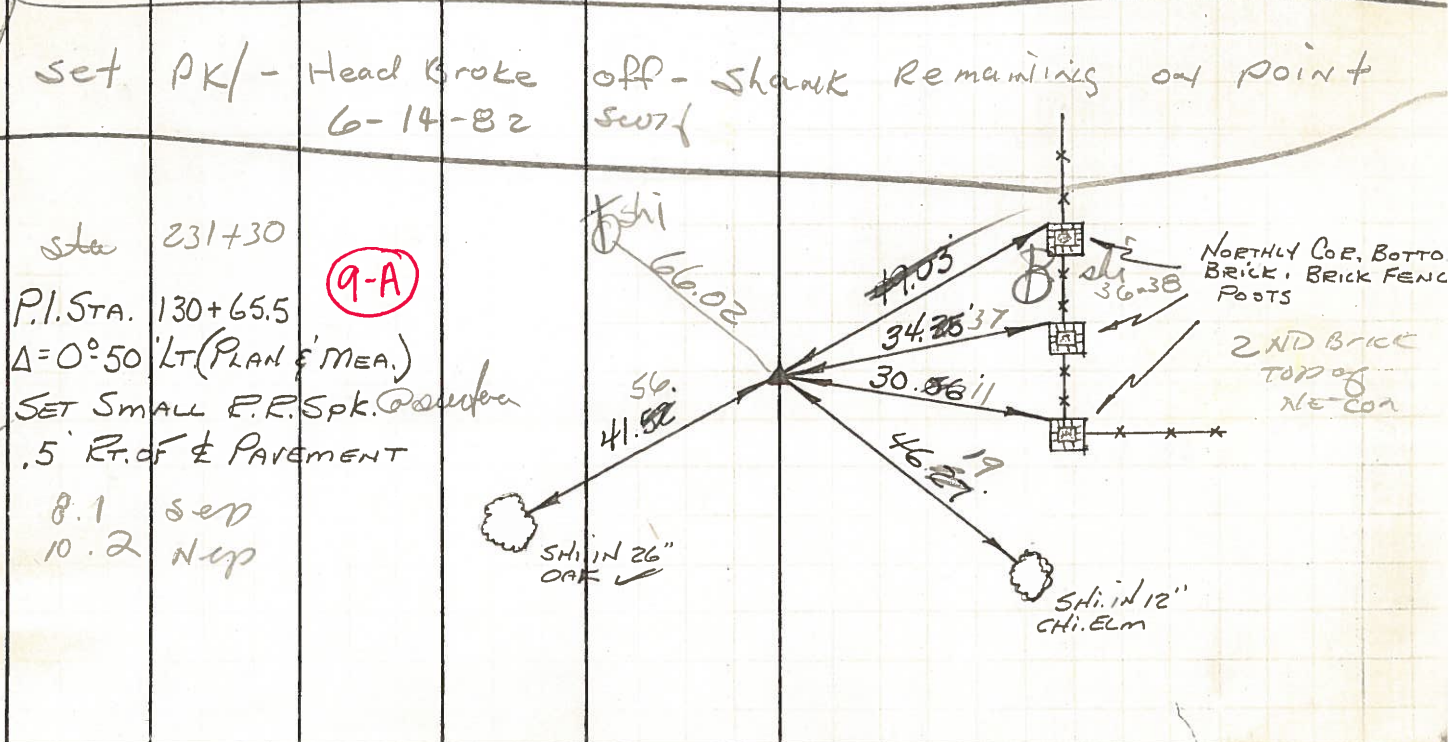 set PK/- Head Broke off- Shank Remaining on point
6-14-82
sta 231+30
9-A
P.I. STA. 130+65.5
Δ=0°50' LT. (PLAN & MEA.)
SET SMALL R.R. Spk. @ surface
.5' RT. OF ℄ PAVEMENT
8.1 sep
10.2 Nep
shi
66.02
19.03'
shi
36.38
34.25 37
30.56 11
56.
41.52
46.27 19
NORTHLY COR. BOTTO
BRICK, BRICK FENC
POSTS
2ND Brick
TOP of
NE-COR
SHI. IN 26"
OAK ✓
SHI. IN 12"
CHI. ELM